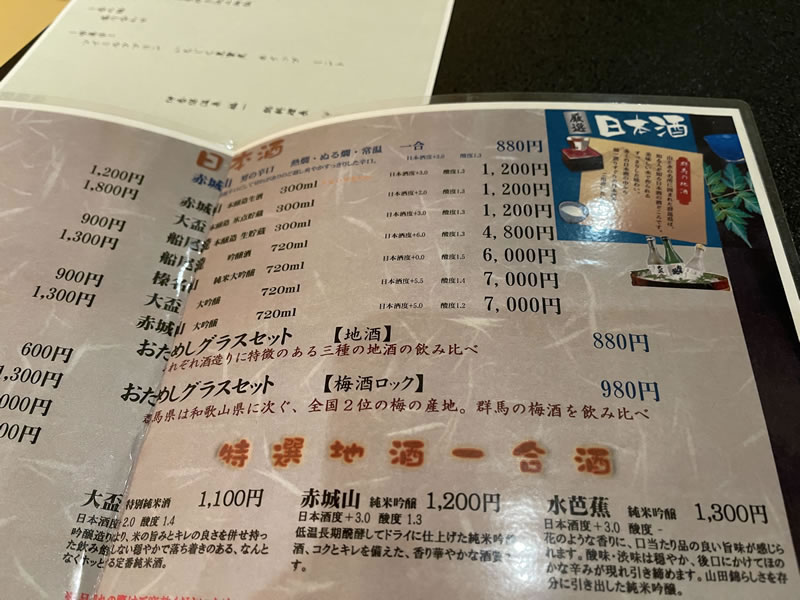 日本酒
赤城山 男の辛口 熱燗・ぬる燗・常温 一合 880円
日本酒度+3.0 酸度1.3
赤城山 本醸造生酒 300ml 日本酒度+3.0 酸度1.3 1,200円
大盃 本醸造 氷点貯蔵 300ml 日本酒度+2.0 酸度1.3 1,200円
船尾瀧 本醸造 生貯蔵 300ml 日本酒度+3.0 酸度1.3 1,200円
船尾瀧 吟醸酒 720ml 日本酒度+6.0 酸度1.3 4,800円
榛名山 純米大吟醸 720ml 日本酒度+0.0 酸度1.5 6,000円
大盃 大吟醸 720ml 日本酒度+5.5 酸度1.4 7,000円
赤城山 大吟醸 720ml 日本酒度+5.0 酸度1.2 7,000円
おためしグラスセット 【地酒】 880円
それぞれ酒造りに特徴のある三種の地酒の飲み比べ
おためしグラスセット 【梅酒ロック】 980円
群馬県は和歌山県に次ぐ、全国2位の梅の産地。群馬の梅酒を飲み比べ
特選地酒一合酒
大盃 特別純米酒 1,100円
日本酒度+2.0 酸度 1.4
吟醸造りより、米の旨みとキレの良さを併せ持っ
た飲み飽しない穏やかで落ち着きのある、なんと
なくホッとする定番純米酒。
赤城山 純米吟醸 1,200円
日本酒度+3.0 酸度 1.3
低温長期醗酵してドライに仕上げた純米吟醸
酒、コクとキレを備えた、香り華やかな酒質
す。
水芭蕉 純米吟醸 1,300円
日本酒度+3.0 酸度 -
花のような香りに、口当たり品の良い旨味が感じら
れます。酸味・渋味は穏やか、後口にかけてほの
かな辛みが現れ引き締めます。山田錦らしさを存
分に引き出した純米吟醸。
厳選
日本酒
群馬の地酒
1,200円
1,800円
900円
1,300円
900円
1,300円
600円
1,300円
000円
00円